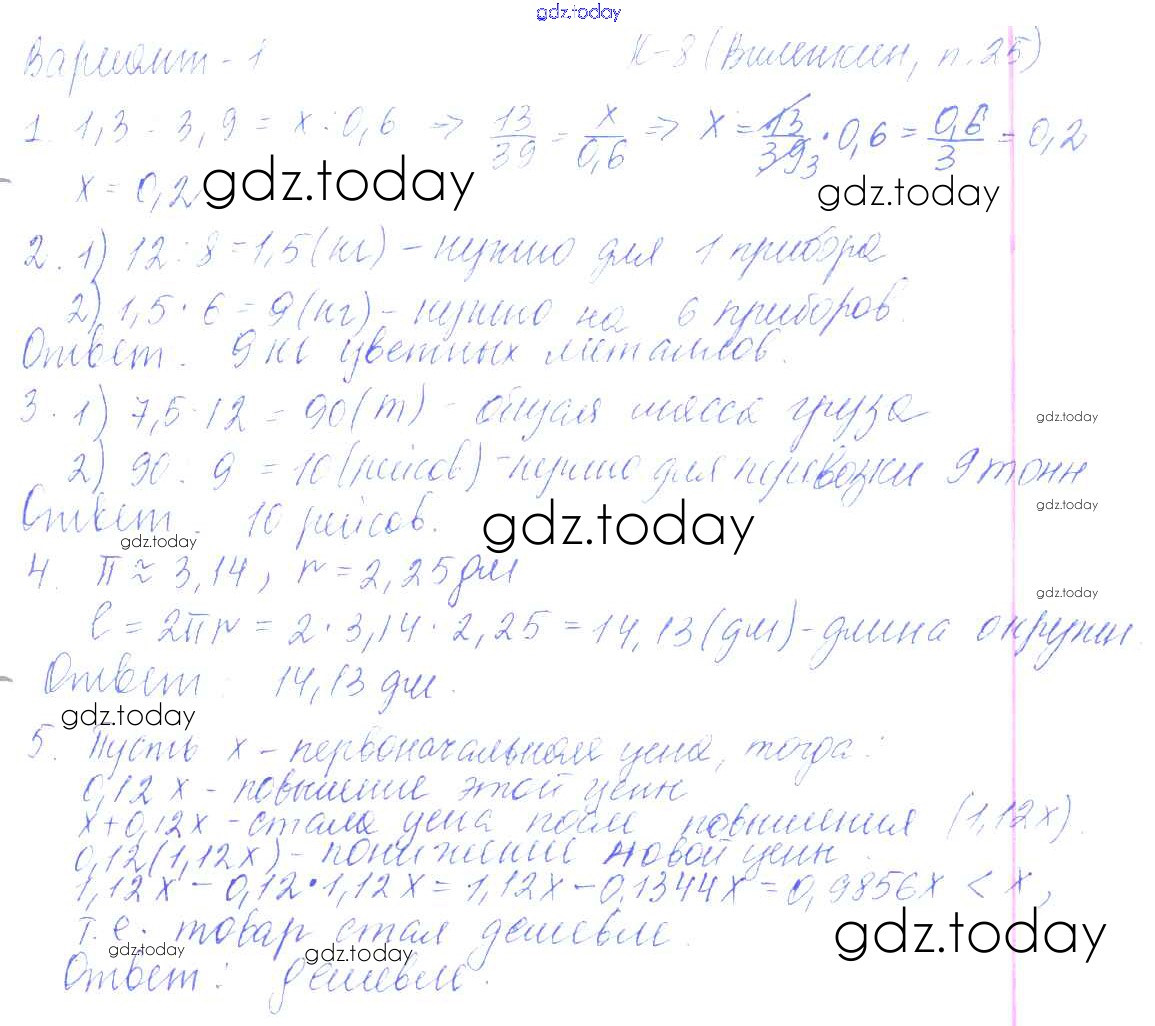 gdz.today
Вариант - 1 К-8 (Виленкин, п. 25)
1. 1,3 : 3,9 = x : 0,6 => 13/39 = x/0,6 => x = 13/39 3 · 0,6 = 0,6/3 = 0,2
x = 0,2
gdz.today gdz.today
2. 1) 12 : 8 = 1,5 (кг) - нужно для 1 прибора
2) 1,5 · 6 = 9 (кг) - нужно на 6 приборов.
Ответ: 9 кг цветных металлов.
3. 1) 7,5 · 12 = 90 (т) - общая масса груза
gdz.today
2) 90 : 9 = 10 (рейсов) - нужно для перевозки 9 тонн
gdz.today
Ответ: 10 рейсов.
gdz.today
gdz.today
4. π ≈ 3,14, r = 2,25 дм
gdz.today
l = 2πr = 2 · 3,14 · 2,25 = 14,13 (дм) - длина окружн.
Ответ: 14,13 дм.
gdz.today
5. Пусть x - первоначальная цена, тогда:
0,12x - повышение этой цены
x + 0,12x - стала цена после повышения (1,12x).
0,12(1,12x) - понижение новой цены.
1,12x - 0,12 · 1,12x = 1,12x - 0,1344x = 0,9856x < x,
т. е. товар стал дешевле.
gdz.today
gdz.today gdz.today
Ответ: дешевле.